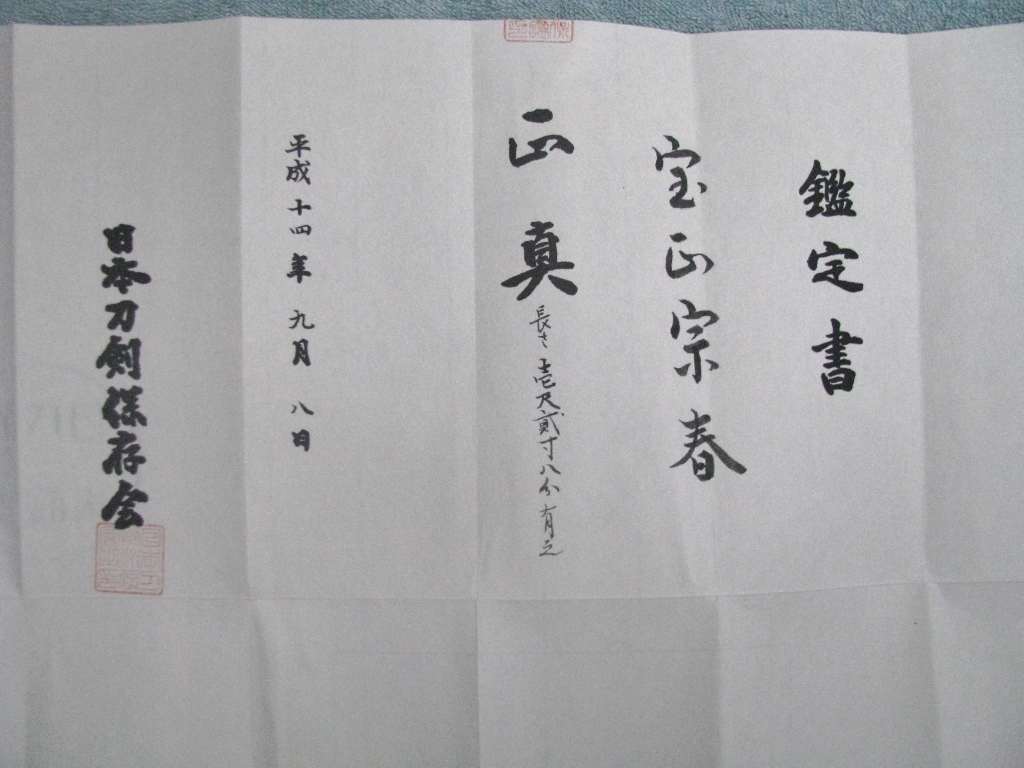 鑑定書
宝正宗春
正真
長さ壱尺貮寸八分有之
平成十四年九月八日
日本刀剣保存会